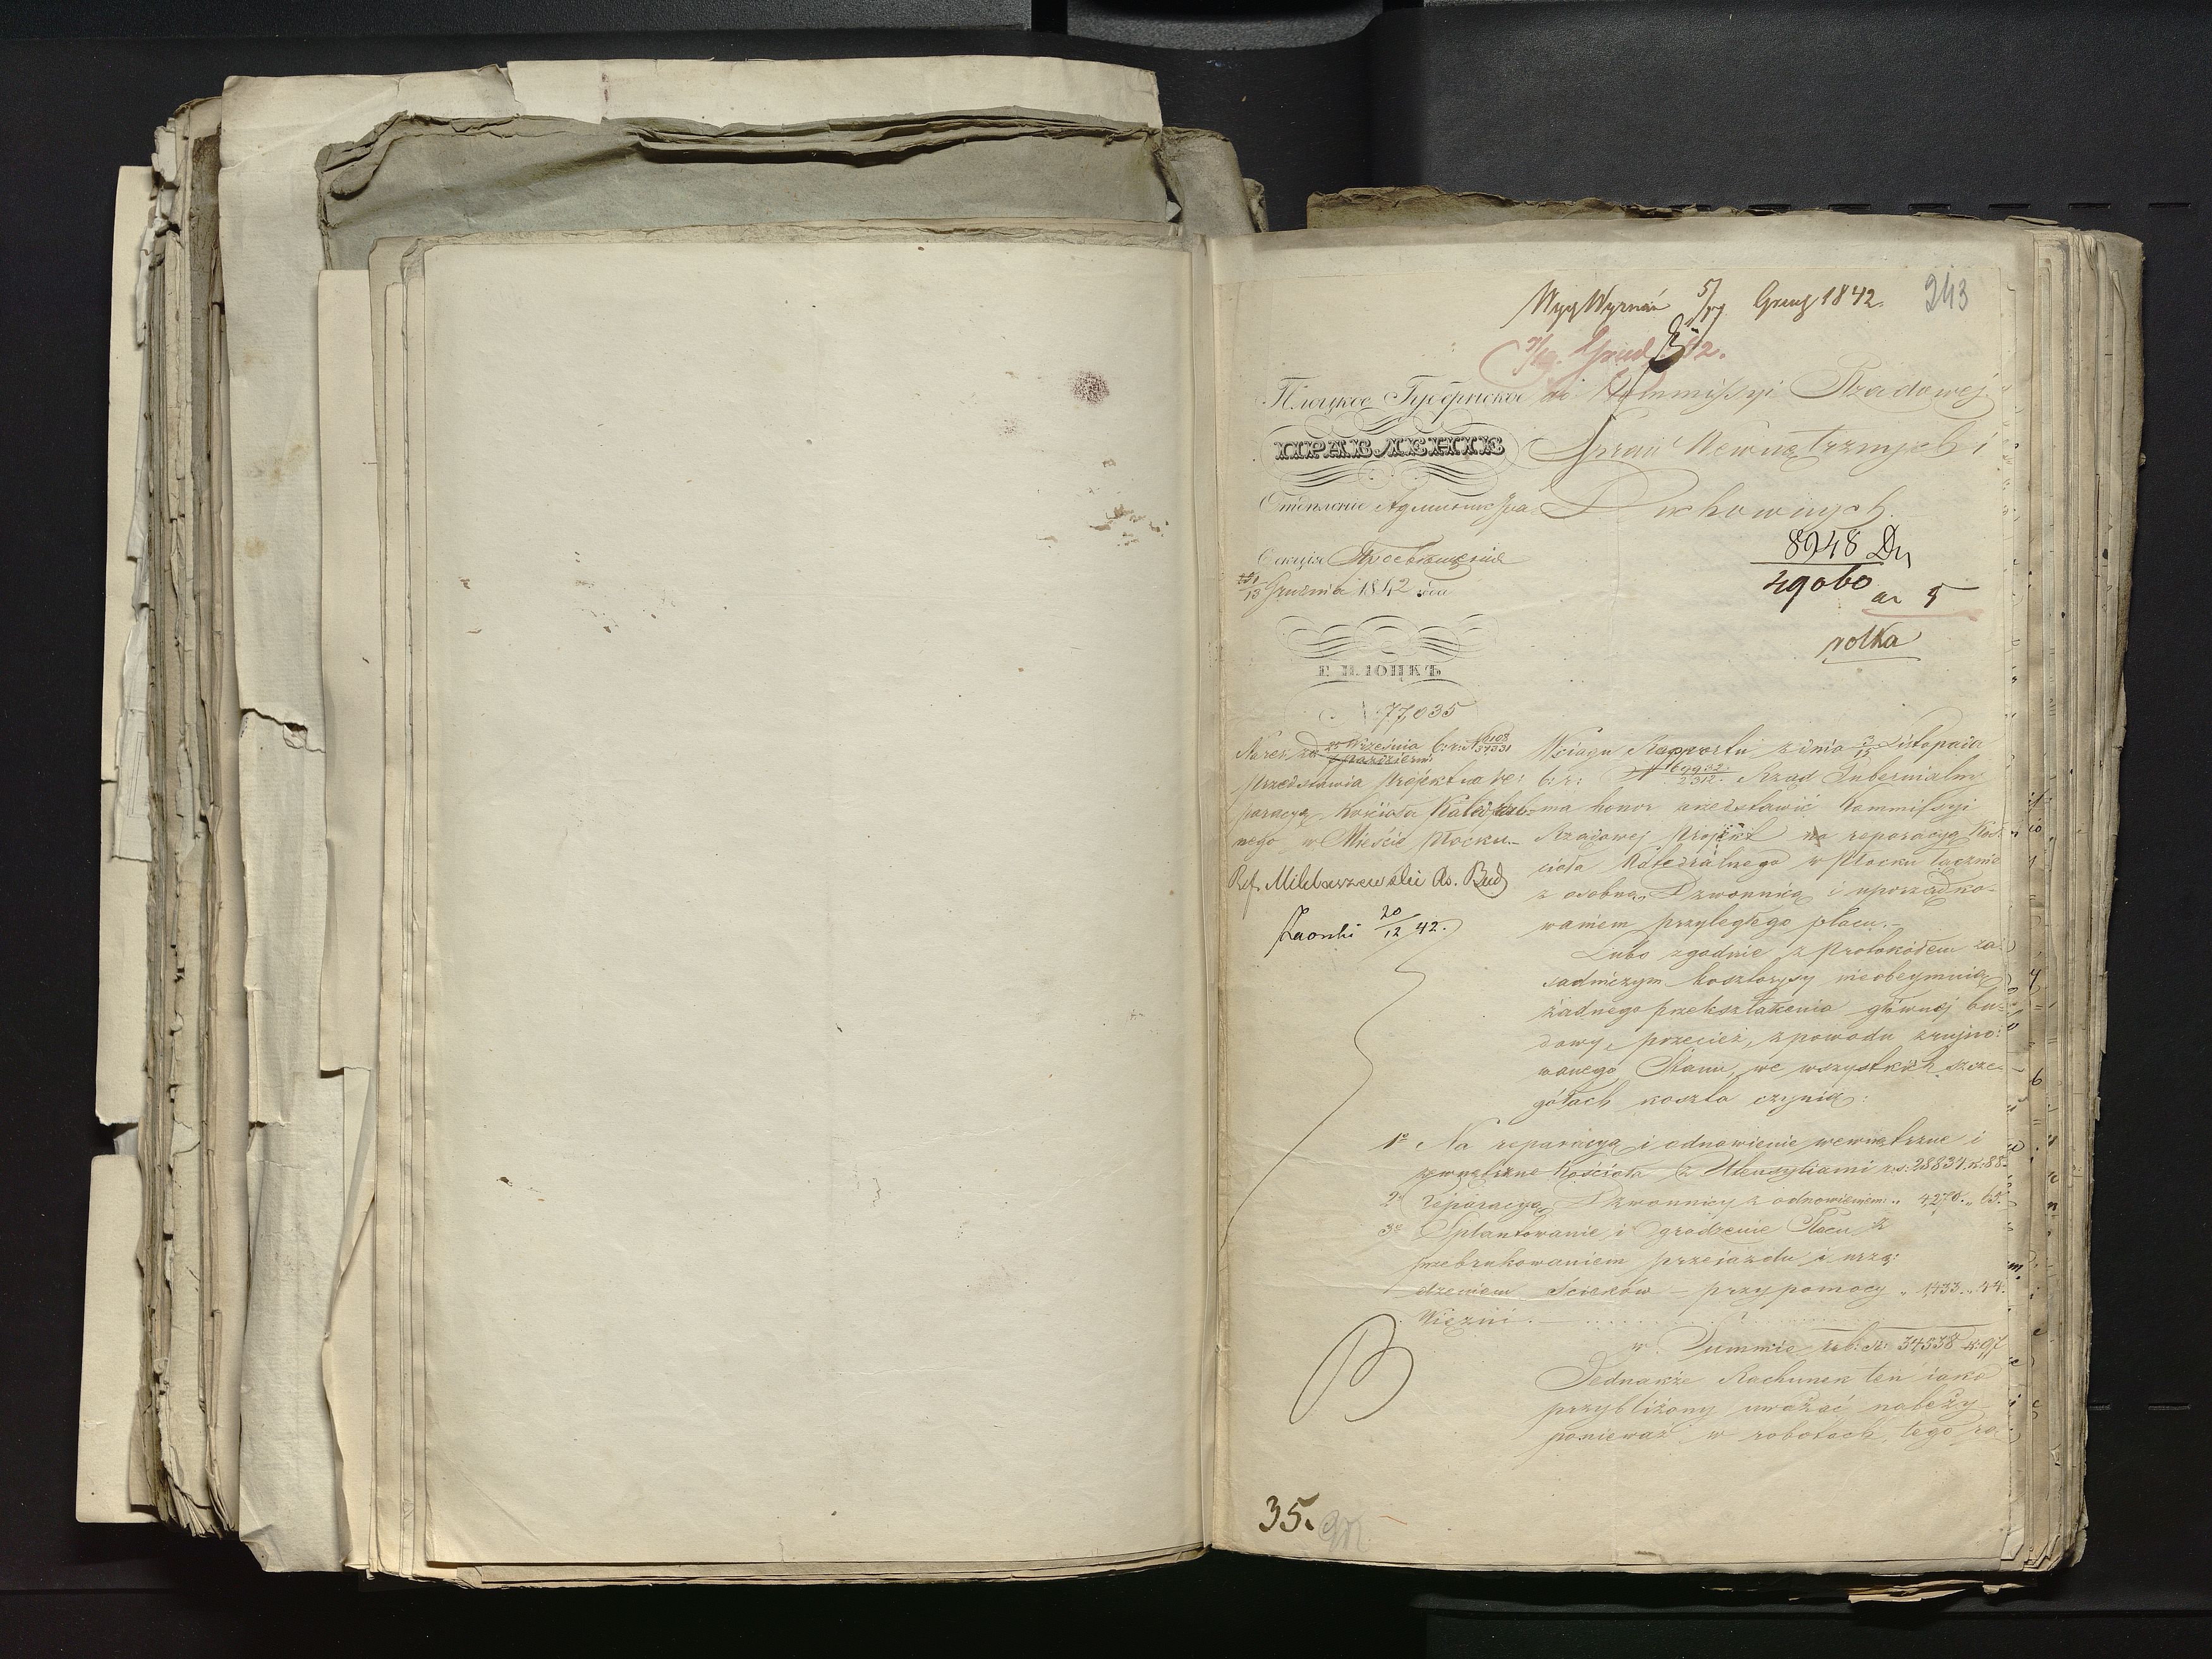 243
5/17 Grud 1842.
Płockoe Губернское
ПРАВЛЕНІЕ
Отдѣленіе Администра
Секція Просвѣщенія
13 Grudnia 1842 roku
Г. ПЛОЦКЪ
77035
do Kommissyi Rządowej
Spraw Wewnętrznych i
Duchownych.
8948 Du
29060
ar 5
Na res. z d. 25 Września
6 Paździer. b. r. N
przedstawia projekt na re:
paracyą Kościoła Katedral-
nego w Mieście Płocku.
Ref. As. Bud
20/12 42.
W ciągu Rapportu z dnia 3/15 Listopada
b: r: N 69932/2312. Rząd Gubernialny
ma honor przedstawić Kommissyi
Rządowej Projekt na reparacyą Koś-
cioła Katedralnego w Płocku łącznie
z osobną Dzwonnicą i uporządko-
waniem przyległego placu.
Lubo zgodnie z Protokółem za-
sadniczym kosztorysy nieobeymuią
żadnego przekształcenia głównéj bu-
dowy, przecież, z powodu zrujno:
wanego Stanu, we wszystkich szcze-
gółach koszta czynią:
1º Na reparacyą i odnowienie wewnętrzne i
zewnętrzne Kościoła z Utensyliami r.s: 28834. k: 88.
2º reparacyą Dzwonnicy z odnowieniem " 4270. " 65.
3º Splantowanie i Ogrodzenie Placu z
przebrukowaniem przejazdu i urzą:
dzeniem Ścieków – przy pomocy " 1433. " 44.
Więźni . —
w Summie rub: sr: 34538 k: 97
Jednakże Rachunek ten iako
przybliżony uważać należy
ponieważ w robotach tego ro
35.